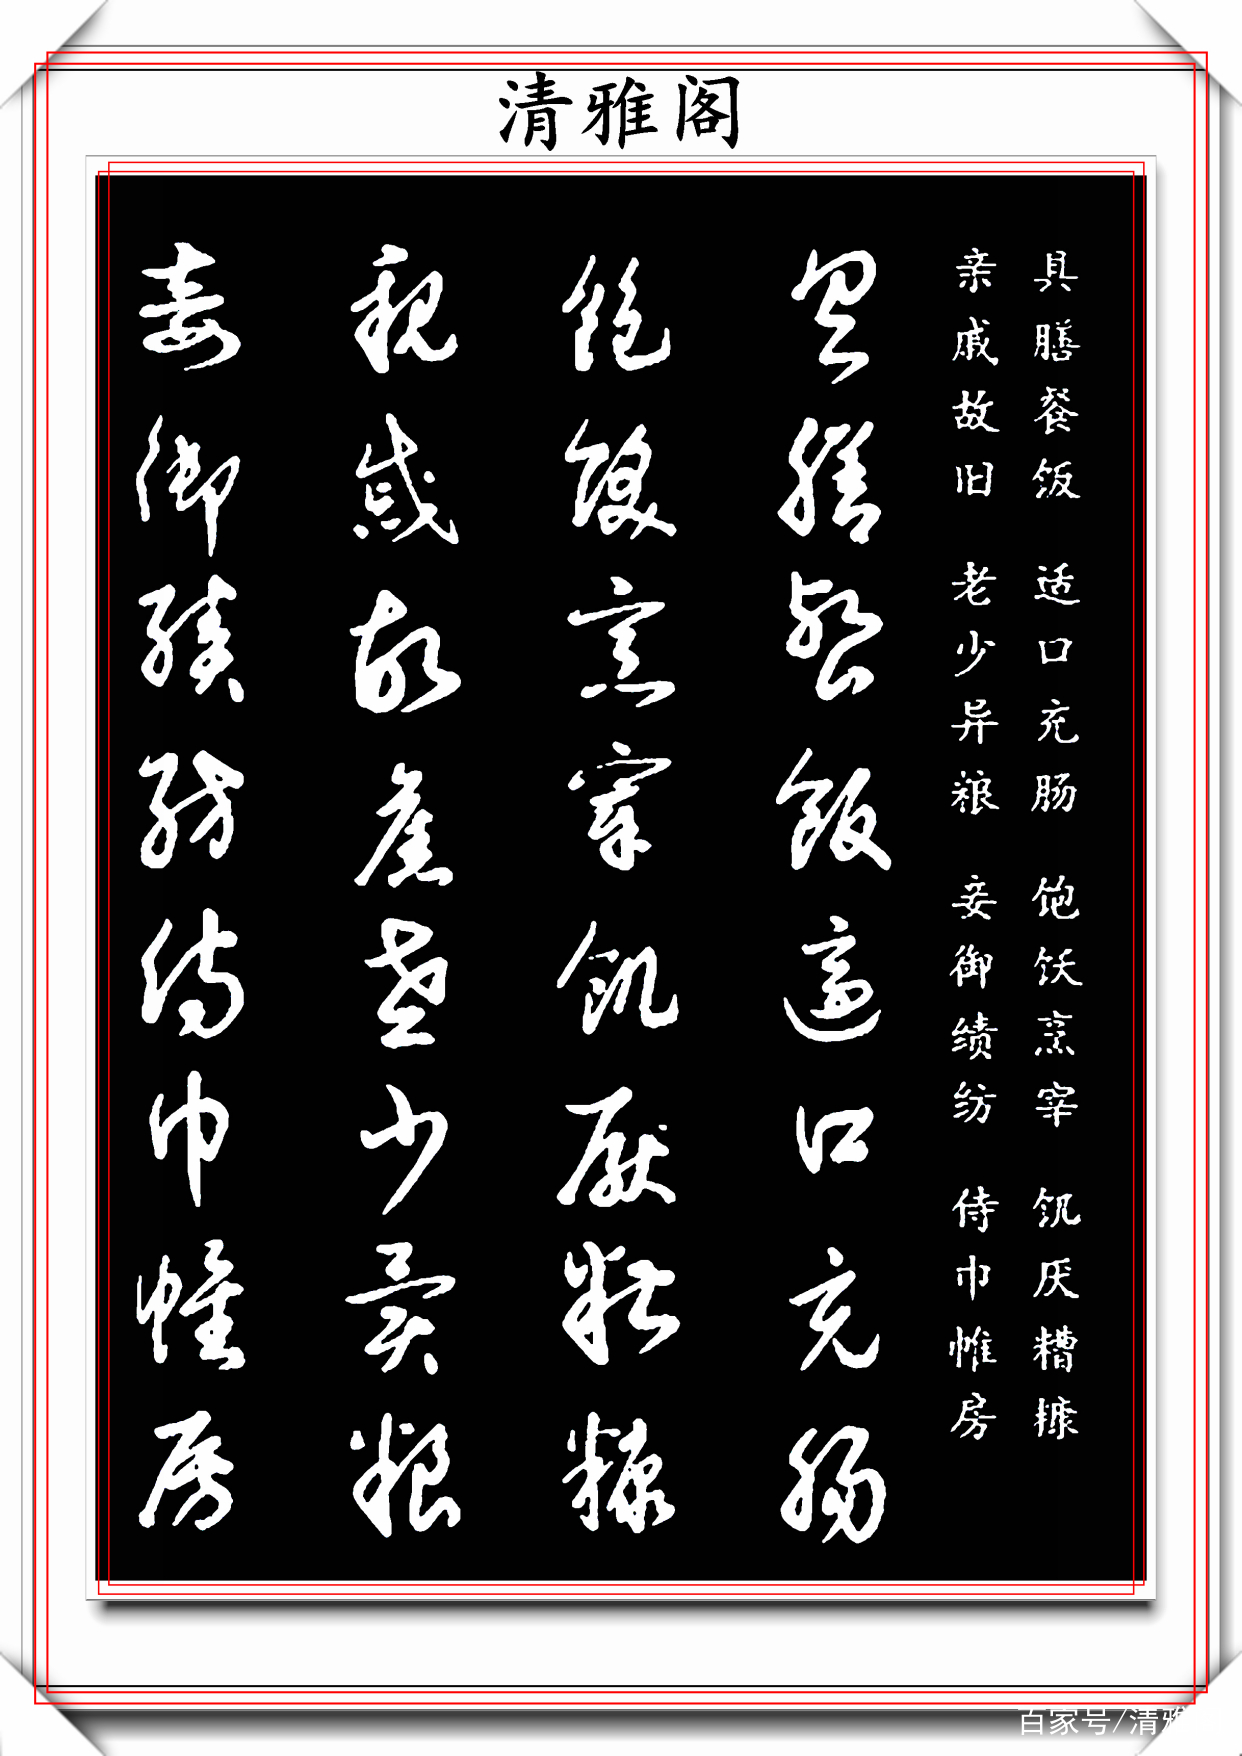 清雅阁
具膳餐饭 适口充肠 饱饫烹宰 饥厌糟糠
亲戚故旧 老少异粮 妾御绩纺 侍巾帷房
具膳餐飯適口充腸
飽飫烹宰飢厭糟糠
親戚故舊老少異糧
妾御績紡侍巾帷房
百家号/清雅